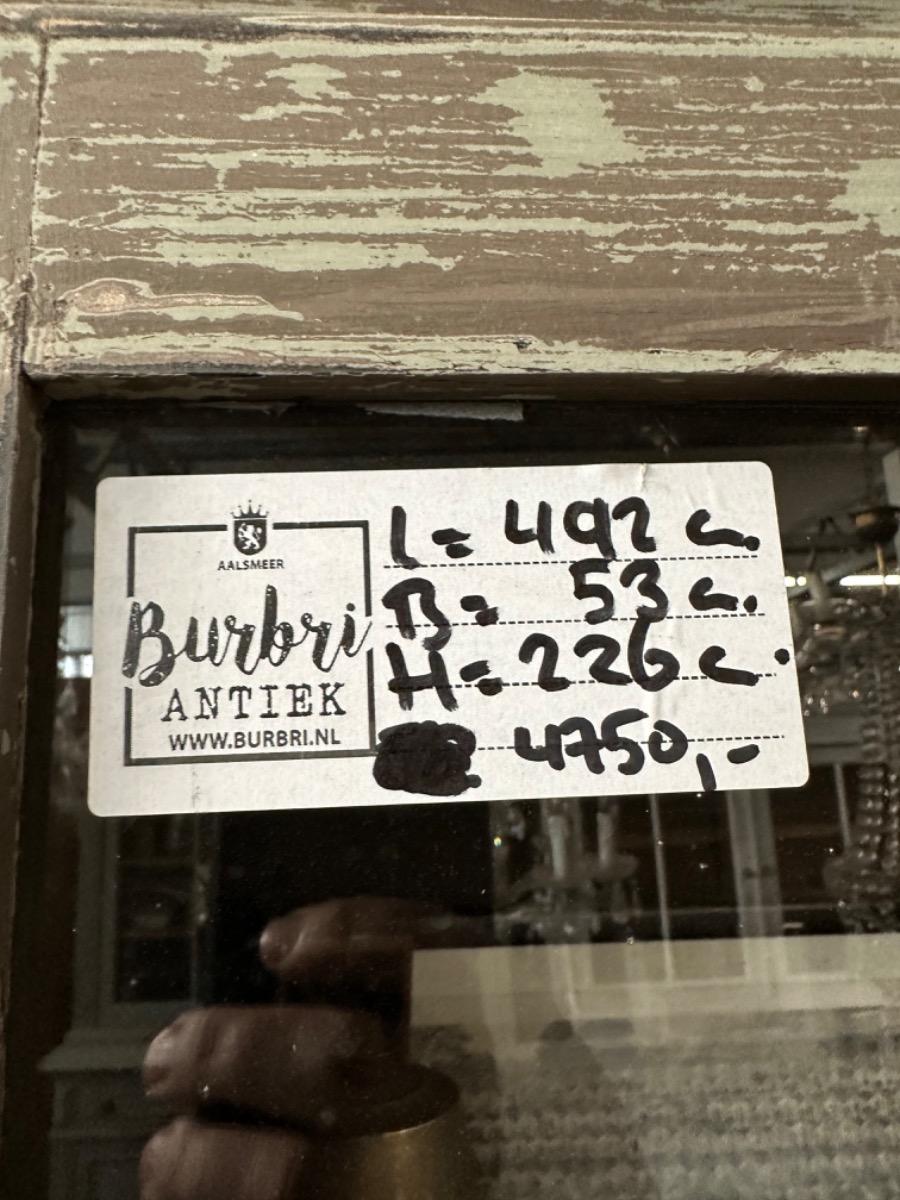 AALSMEER
Burbri
ANTIEK
WWW.BURBRI.NL
L= 492 c.
B= 53 c.
H= 226 c.
4750,-